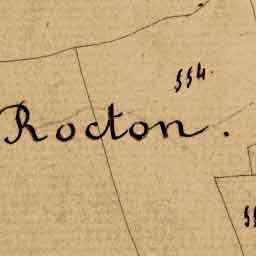 554.
Rocton.